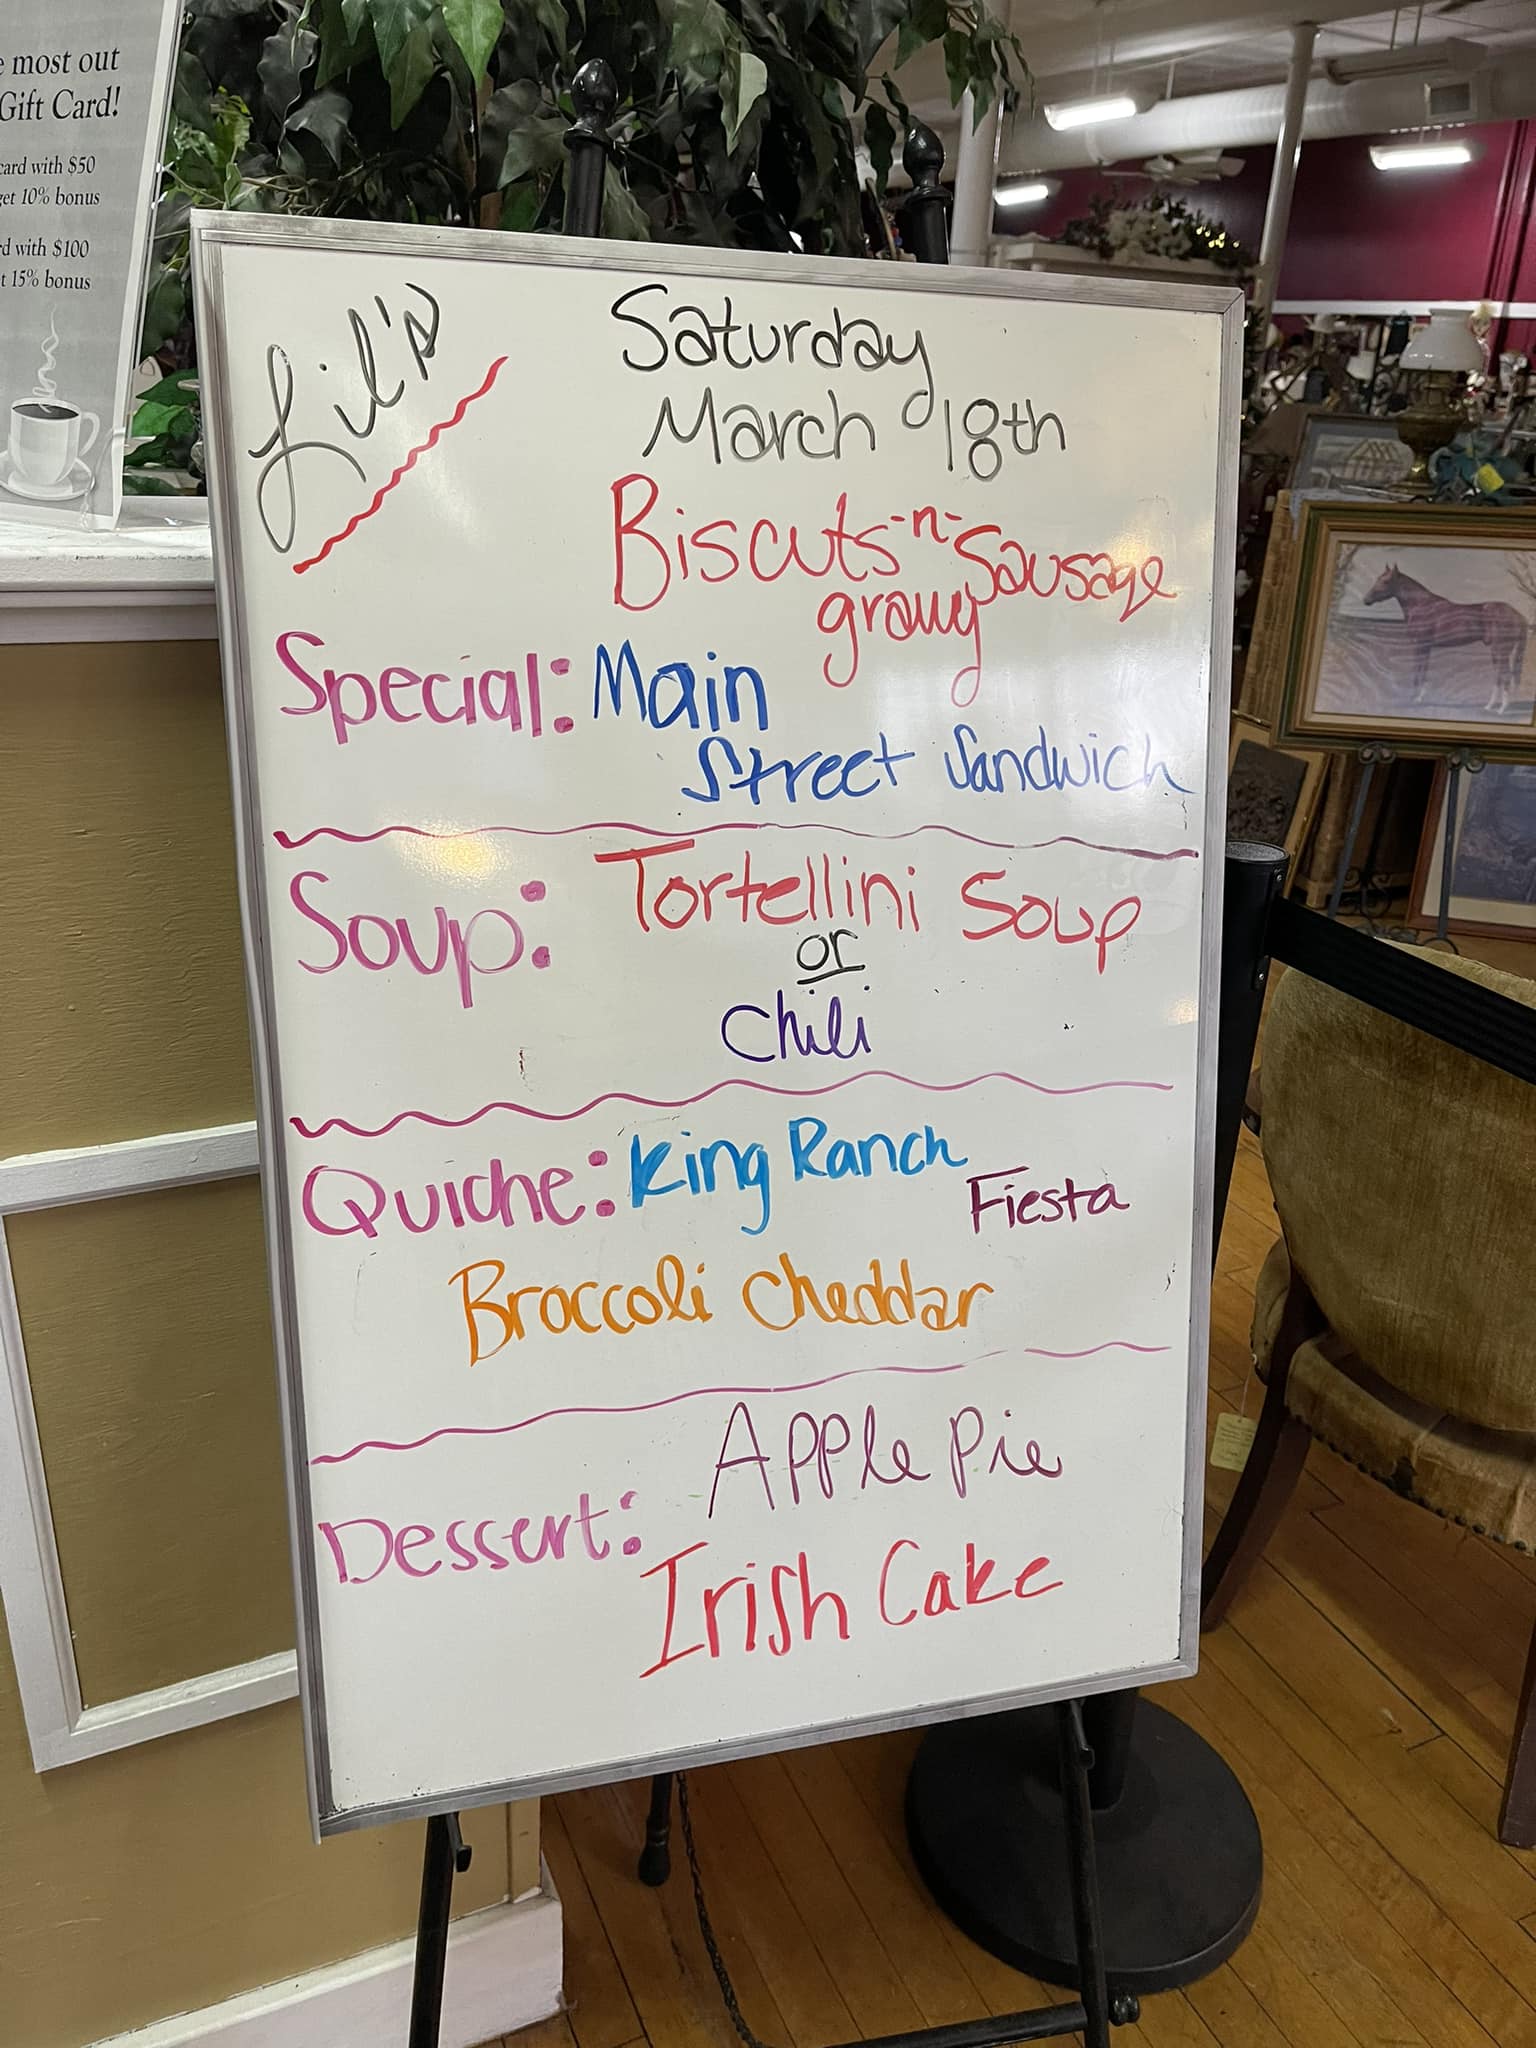 e most out
Gift Card!
card with $50
get 10% bonus
rd with $100
t 15% bonus
Lil's
Saturday
March 18th
Biscuts -n- Sausage
gravy
Special: Main
Street Sandwich
Soup: Tortellini Soup
or
Chili
Quiche: King Ranch
Fiesta
Broccoli Cheddar
Apple Pie
Dessert:
Irish Cake